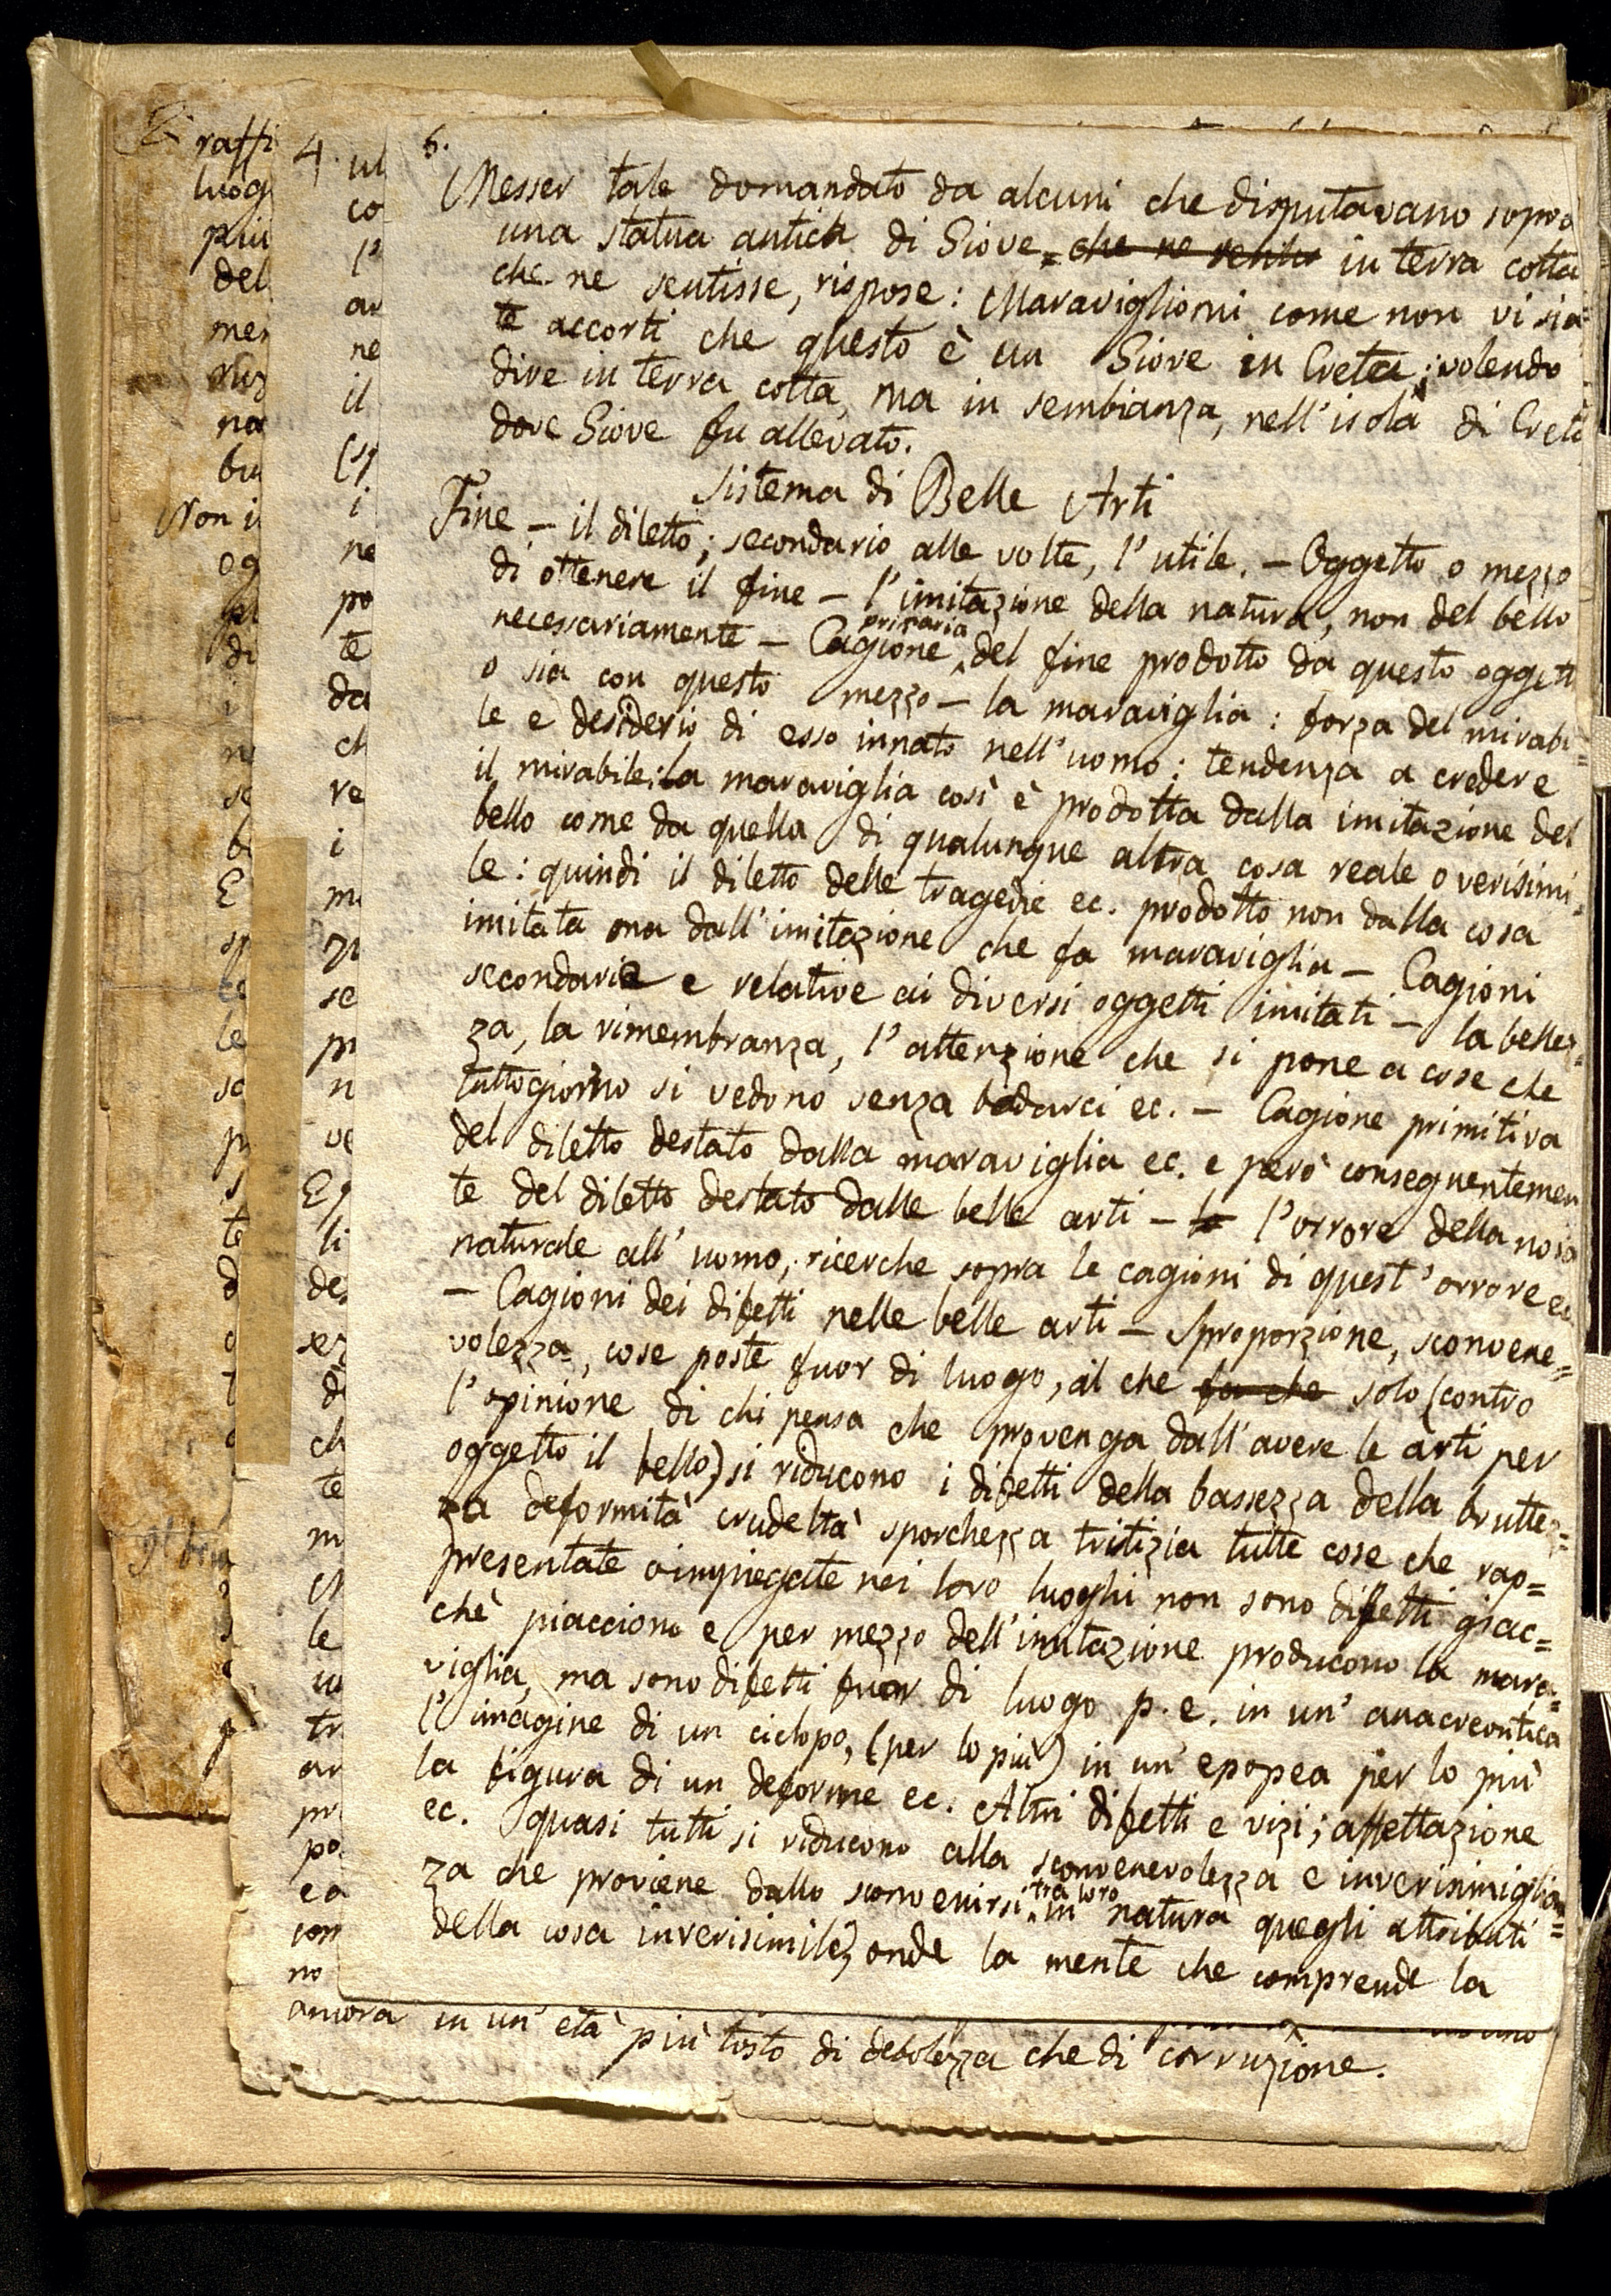 6.
Messer tale domandato da alcuni che disputavano sopra
una statua antica di Giove = che ne sentis in terra cotta
che ne sentisse, rispose: Maravigliomi come non vi sia=
te accorti che questo è un Giove in Creta; volendo
dire in terra cotta, ma in sembianza, nell'isola di Creta
dove Giove fu allevato.
Sistema di Belle Arti
Fine – il diletto; secondario alle volte, l'utile. – Oggetto o mezzo
di ottenere il fine – l'imitazione della natura, non del bello
necessariamente – Cagione primaria del fine prodotto da questo oggett
o sia con questo mezzo – la maraviglia: forza del mirabi=
le e desiderio di esso innato nell'uomo: tendenza a credere
il mirabile: la maraviglia così è prodotta dalla imitazione del
bello come da quella di qualunque altra cosa reale o verisimi=
le: quindi il diletto delle tragedie ec. prodotto non dalla cosa
imitata ma dall'imitazione che fa maraviglia – Cagioni
secondarie e relative ai diversi oggetti imitati – la bellez=
za, la rimembranza, l'attenzione che si pone a cose che
tuttogiorno si vedono senza badarci ec. – Cagione primitiva
del diletto destato dalla maraviglia ec. e però conseguentemen
te del diletto destato dalle belle arti – la l'orrore della noia
naturale all'uomo, ricerche sopra le cagioni di quest'orrore ec.
– Cagioni dei difetti nelle belle arti – Sproporzione, sconvene=
volezza, cose poste fuor di luogo, al che fa che solo (contro
l'opinione di chi pensa che provenga dall'avere le arti per
oggetto il bello) si riducono i difetti della bassezza della bruttez=
za deformità crudeltà sporchezza tristizia tutte cose che rap=
presentate o impiegate nei loro luoghi non sono difetti giac=
chè piacciono e per mezzo dell'imitazione producono la mara=
viglia, ma sono difetti fuor di luogo p. e. in un' anacreontica
l'imagine di un ciclopo, (per lo più) in un' epopea per lo più
la figura di un deforme ec. Altri difetti e vizi; affettazione
ec. quasi tutti si riducono alla sconvenevolezza e inverisimiglian=
za che proviene dallo sconvenirsi tra loro in natura quegli attributi
della cosa inverisimile, onde la mente che comprende la
ancora in un' età più tosto di debolezza che di corruzione.
E raffi
luog
piu
del
Non i
4.
ul
co
l'
ne
il
i
ne
po
te
da
ch
re
i
se
n
ve
li
ch
te
le
tr
no